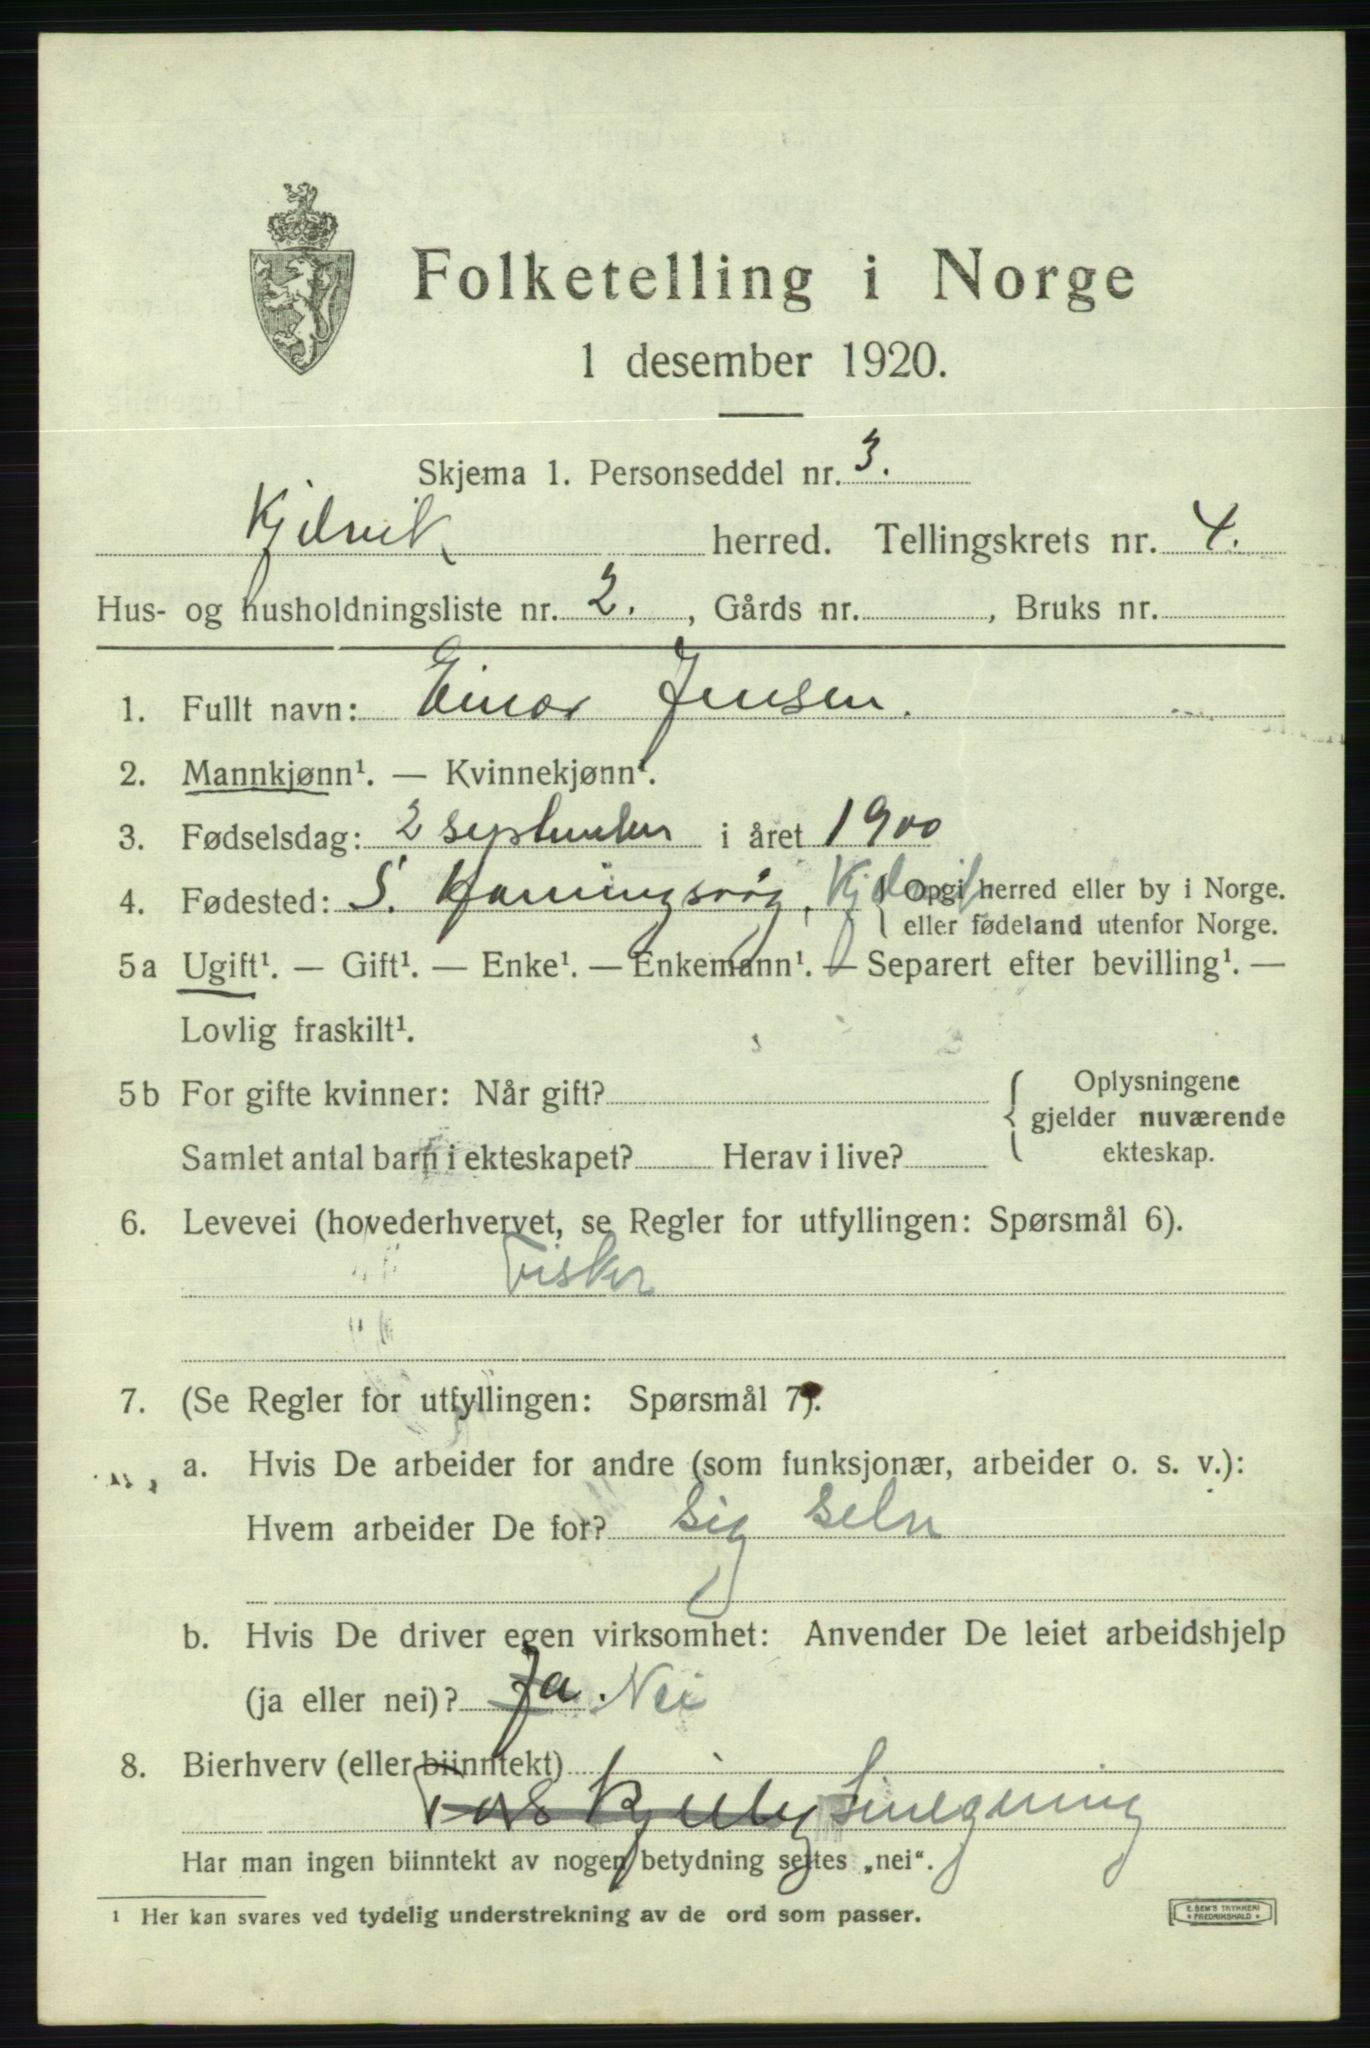 Folketelling i Norge
1 desember 1920.
Skjema 1. Personseddel nr. 3.
Kjelvik herred. Tellingskrets nr. 4.
Hus- og husholdningsliste nr. 2. , Gårds nr. , Bruks nr.
1. Fullt navn: Einar Jensen.
2. Mannkjønn¹. — Kvinnekjønn¹.
3. Fødselsdag: 2 september i året 1900
4. Fødested: S. Honningsvåg, Kjelvik { Opgi herred eller by i Norge.
eller fødeland utenfor Norge.
5a Ugift¹. — Gift¹. — Enke¹. — Enkemann¹. — Separert efter bevilling¹. —
Lovlig fraskilt¹.
5b For gifte kvinner: Når gift? { Oplysningene
gjelder nuværende
Samlet antal barn i ekteskapet? Herav i live? ekteskap.
6. Levevei (hovederhvervet, se Regler for utfyllingen: Spørsmål 6).
Fisker
7. (Se Regler for utfyllingen: Spørsmål 7).
a. Hvis De arbeider for andre (som funksjonær, arbeider o. s. v.):
Hvem arbeider De for? sig selv
b. Hvis De driver egen virksomhet: Anvender De leiet arbeidshjelp
(ja eller nei)? Ja. Nei
8. Bierhverv (eller biinntekt)
Lineegning
Har man ingen biinntekt av nogen betydning settes „nei".
¹ Her kan svares ved tydelig understrekning av de ord som passer.
E. SEM'S TRYKKERI
* FREDRIKSHALD *